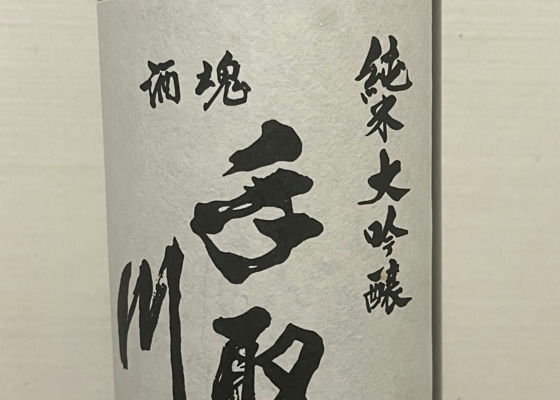 純米大吟醸
酒魂
手取
川